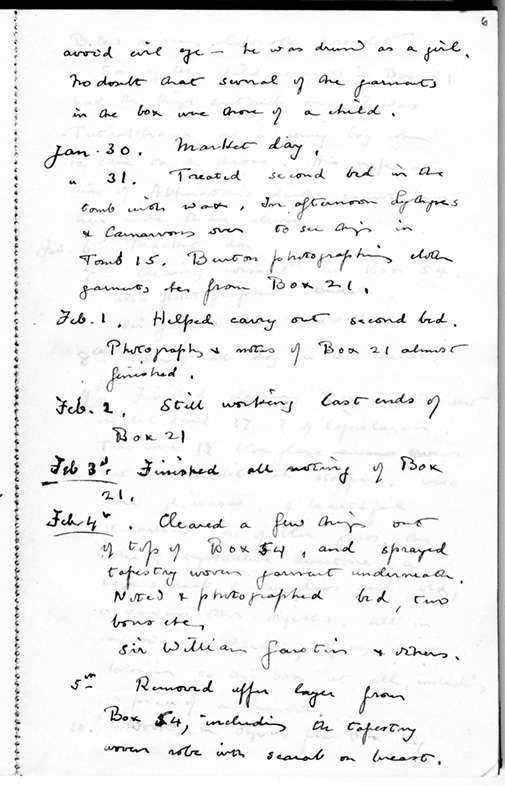 6
avoid evil eye – he was dressed as a girl.
No doubt that several of the garments
in the box were those of a child.
Jan. 30. Market day.
" 31. Treated second bed in the
tomb with wax. In afternoon Lythgoes
& Carnarvons over to see things in
Tomb 15. Burton photographing cloth
garments etc from Box 21.
Feb. 1. Helped carry out second bed.
Photographs & notes of Box 21 almost
finished.
Feb. 2. Still working last ends of
Box 21
Feb 3rd. Finished all noting of Box
21.
Feb 4th. Cleared a few things out
of top of Box 54, and sprayed
tapestry woven garment underneath.
Noted & photographed bed, two
bows etc.
Sir William Garstin & others.
5th Removed upper layer from
Box 54, including the tapestry
woven robe with scarab on breast.